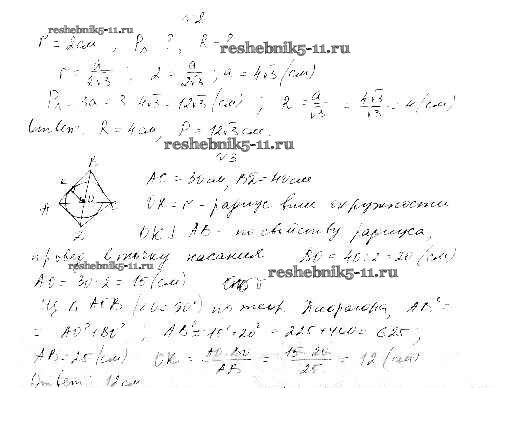 №2
reshebnik5-11.ru
r = 2см, P₃ - ?, R = ?
reshebnik5-11.ru
r = a/2√3 ; 2 = a/2√3 ; a = 4√3 (см)
P₃ = 3a = 3·4√3 = 12√3 (см) ; R = a/√3 = 4√3/√3 = 4 (см)
Ответ: R = 4см, P = 12√3 см.
reshebnik5-11.ru
№3
AC = 30см, BD = 40см
OK = r - радиус впис окружности
OK ⊥ AB - по свойству радиуса,
провед в точку касания BO = 40:2 = 20 (см)
reshebnik5-11.ru
AO = 30:2 = 15 (см)
reshebnik5-11.ru
Из (∠O = 90°) по теор. Пифагора AB² =
= AO² + BO² ; AB² = 15² + 20² = 225 + 400 = 625,
AB = 25 (см) OK = AO·BO/AB = 15·20/25 = 12 (см)
Ответ: 12см